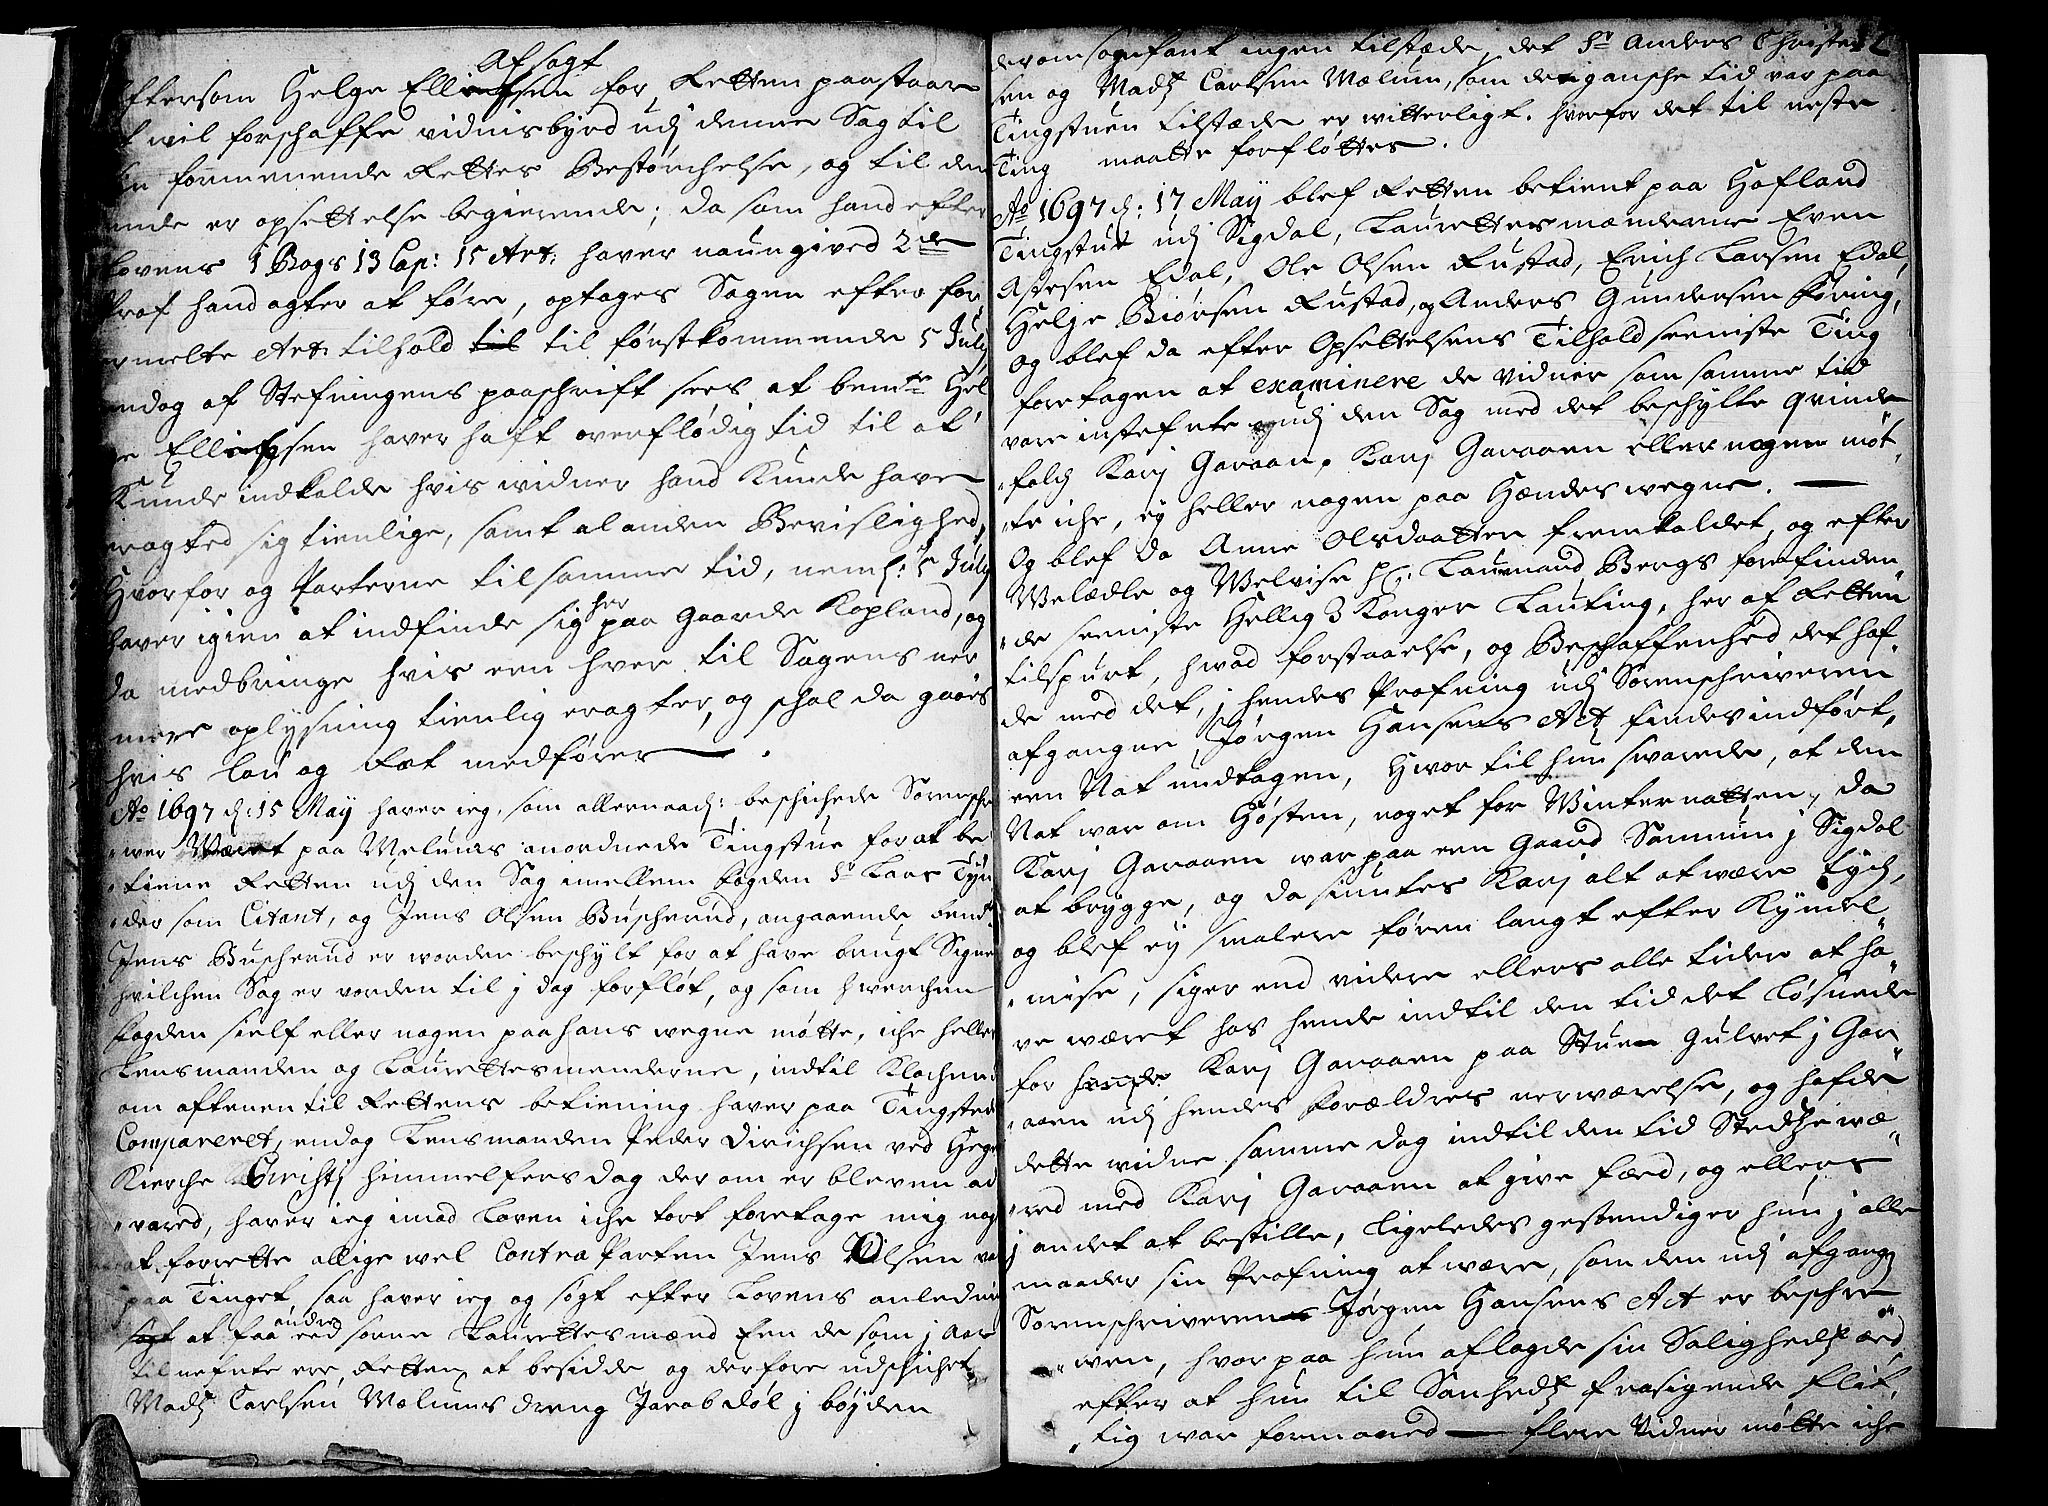 Afsagt
Eftersom Helge Ellingsen for Retten paastaar
at wil forschaffe vidnisbyrd udj denne Sag til
sin formenende Rettes Bestørchelse, og til den
ende er opsettelse begierende; da som hand efter
Lovens 1 Bogs 13 Cap: 15 Art: haver naungived 2de
Prof hand agter at føre, optages Sagen efter for
ermelte Art: tilhold til til førstkommende 5 July
endog af Stefningens paaschrift sees at bemte Hel
ge Ellingsen haver haft overflødig tid til at
Kunde indkalde hvis widner hand Kunde have
eragted sig tienlige, samt al anden Bevislighed,
Hvorfor og Parterne til samme tid, neml: 5 July
haver igien at indfinde sig her paa Gaarde Kopland, og
da medbringe hvis een hver til Sagens ner
mere oplysning tienlig eragter, og schal da gaaes
hvis lau og Ret medfører
Ao 1697 d: 15 May haver ieg, som allernaad: beschichede Sorensche
wer Været paa Melums anordnede Tingstue for at be
tiene Retten udj den Sag imellem fogden Sr Lars Tyn
der som Citant, og Jens Olsen Buscherud, angaaende bemte
Jens Buscherud er worden beschylt for at have brugt Signe
hvilchen Sag er vorden til j dag forfløt, og som hwerchen
fogden sielf eller nogen paa hans wegne møtte, iche heller
Lensmanden og Laurettesmenderne, indtil Klochen
om aftenen til Rettens betiening haver paa Tingsteden
Compareret, endog Lensmanden Peder Dirichsen ved Hege
Kierche Christj himmelfers dag der om er bleven ad
vared, haver ieg imod Loven iche tort foretage mig noget
at forrette allige wel Contra Parten Jens Olsen var
paa Tinget, saa haver ieg og søgt efter Lovens anledning
sagt at faa andre eedsorne Laurettesmænd Een de som j aar
til nefnte ere, Retten at besidde og derfore udschichet
Madz Carlsen Mælums dreng Jacob døl j bøyden
derom søgefant ingen tilstæde, det Sr Anders Christen
sen og Madz Carlsen Mælum, som den gansche tid var paa
Tingstuen tilstæde er witterligt. hvorfor det til neste
Ting maatte forfløttes.
Ao 1697 d: 17 May blef Retten betient paa Hofland
Tingstue udj Sigdal, Laurettesmænderne Even
Assesen Edal, Ole Olsen Rustad, Erich Larsen Edal,
Helge Biørsen Rustad, og Anders Gundersen Køning,
og blef da efter Opsettelsens Tilhold seeniste Ting
foretagen at examinere de vidner som samme tid
vare instefnte udj den Sag med det beschylte qvinde
folch Karj Garaaen, Karj Garaaen eller nogen møt
te iche, ey heller nogen paa Hendes wegne.
Og blef da Anne Olsdaatter fremkaldet, og efter
Welædle og Welvise Hr: Laumand Bergs forefinden
de seeniste Hellig 3 Konger Lauting, her af Retten
tilspurt, hvad forstaaelse, og Beschaffenhed det haf
de med det, j hendes Profning udj Sorenschriveren
afgangne Jørgen Hansens Act findes indført,
een Nat undtagen, Hwor til hun swarede, at den
Nat war om Høsten, noget for Winternatten, da
Karj Garaaen war paa een Gaard Sommun j Sigdal
at brygge, og da siuntes Karj alt at wære tych,
og blef ey smalere føren langt efter Kyndel
mise, siger end videre ellers alle tider at ha
ve været hos hende indtil den tid det Løsnede
for hende Karj Garaaen paa Stuen Gulvet j Gar
aaen udj hendes forældres nerværelse, og hafde
dette widne samme dag indtil den tid Stedtze wæ
red med Karj Garaaen at give færd, og ellers
j andet at bestille, ligeledes gestendiger hun j alle
maader sin Profning at wære, som den udj afgangne
Sorenschriverens Jørgen Hansens Act er beschre
wen, hvor paa hun aflagde sin Saligheds æd
efter at hun til Sanhedz frasigende flit
tig war formaned — flere Vidner møtte iche